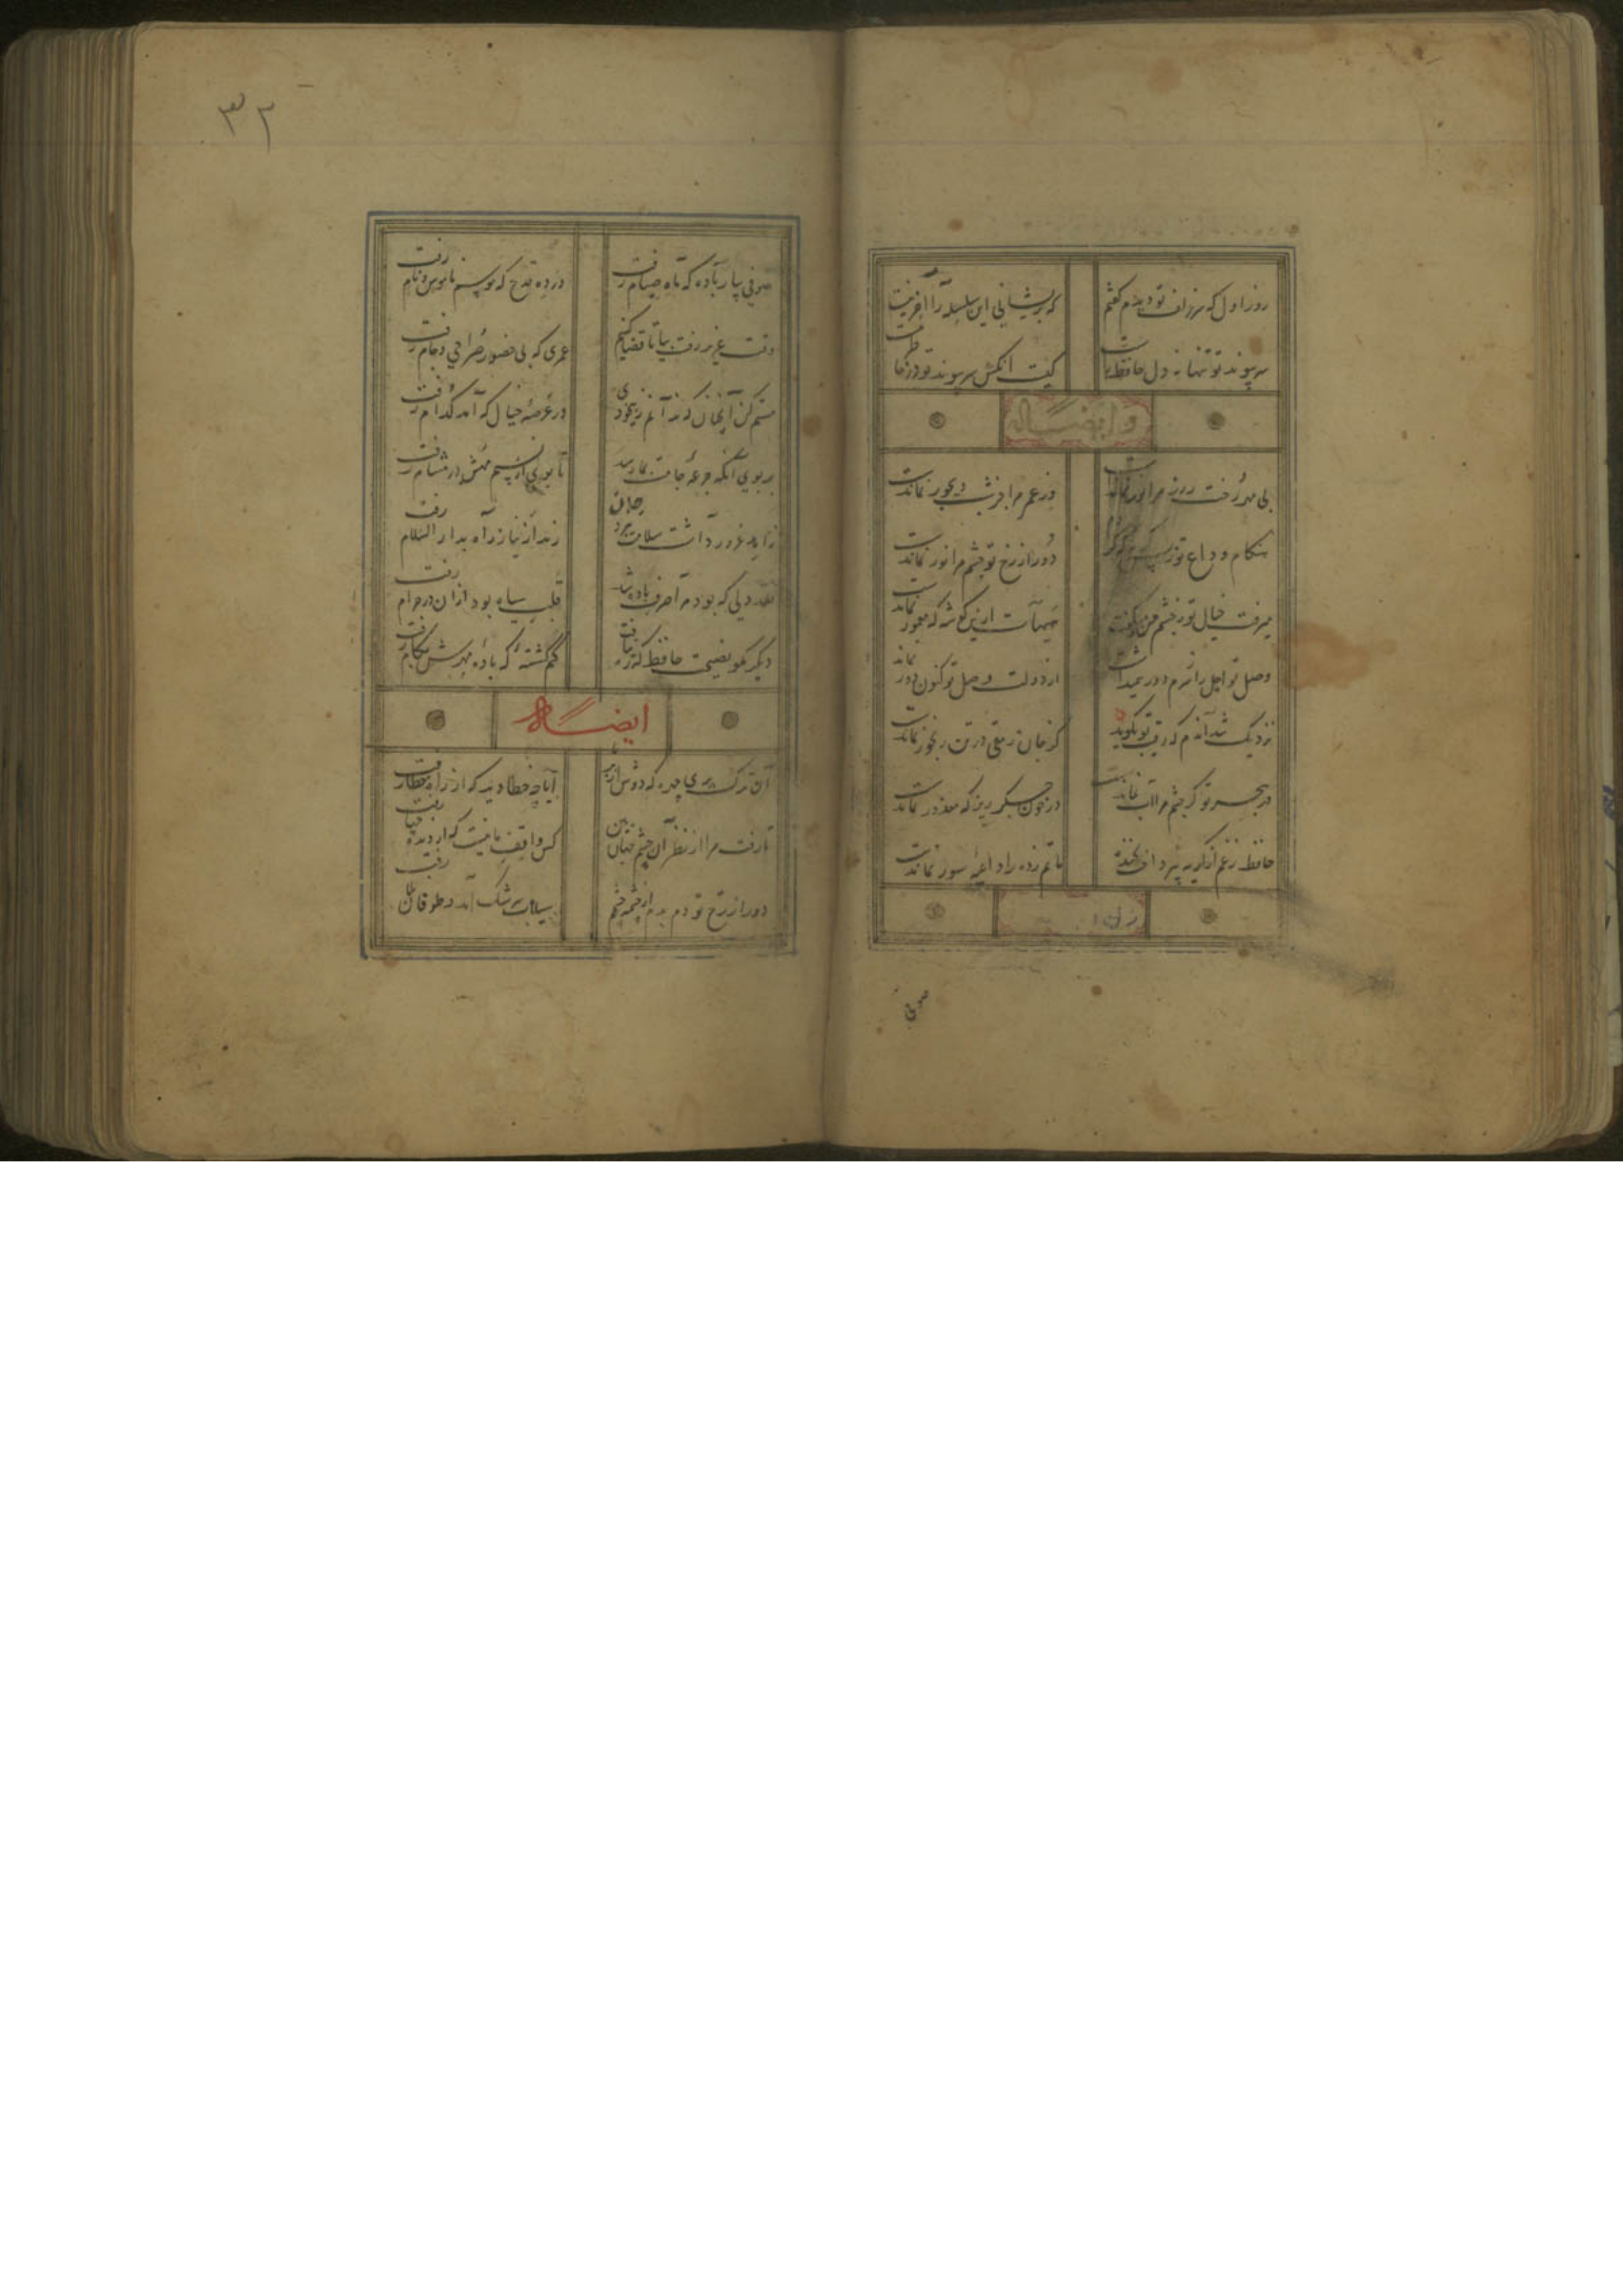 روز اول که سر زلف تو دیدم گفتم
که پریشانی این سلسله را آخر نیست
سر پیوند تو تنها نه دل حافظ راست
کیست آنکش سر پیوند تو در خاطر نیست
وایضاله
بی مهر رخت روز مرا نور نماندست
وز عمر مرا جز شب دیجور نماندست
هنکام وداع تو ز بس کریه که کردم
دور از رخ تو چشم مرا نور نماندست
میرفت خیال تو ز چشم من و میکفت
هیهات ازین کوشه که معمور نماندست
وصل تو اجل را ز سرم دور همیداشت
از دولت وصل تو کنون دور نماند
نزدیک شد آندم که رقیب تو بکوید
کز جان رمقی در تن رنجور نماندست
در هجر تو کر چشم مرا آب نماندست
در خون جکر ریز که معذور نماندست
حافظ ز غم از کریه نپرداخت بخنده
ماتم زده را داعیه سور نماندست
صوفی
۳۲
صوفی بیار باده که ماه صیام رفت
در ده قدح که موسم ناموس و نام رفت
وقت عزیز رفت بیا تا قضا کنیم
عمری که بی حضور صراحی و جام رفت
مستم کن آنچنان که ندانم ز بیخودی
در عرصه خیال که آمد کدام رفت
بر بوی آنکه جرعه جامت بما رسد
زاهد غرور داشت سلامت نبرد راه
رند از نیاز راه بدار السلام رفت
نقد دلی که بود مرا صرف باده شد
قلب سیاه بود ازان در حرام رفت
دیکر مکو نصیحت حافظ که ره نیافت
کم کشته که باده مهرش بکام رفت
ایضاله
آن ترک پری چهره که دوش از بر ما رفت
آیا چه خطا دید که از راه خطا رفت
تا رفت مرا از نظر آن چشم جهان بین
کس واقف ما نیست که از دیده چها رفت
دور از رخ تو دم بدم از چشمه چشم
سیلاب سرشک آمد و طوفان بلا رفت